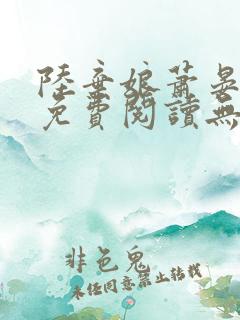 陸棄娘蕭晏
免費閱讀無
非色鬼
未經同意禁止轉載